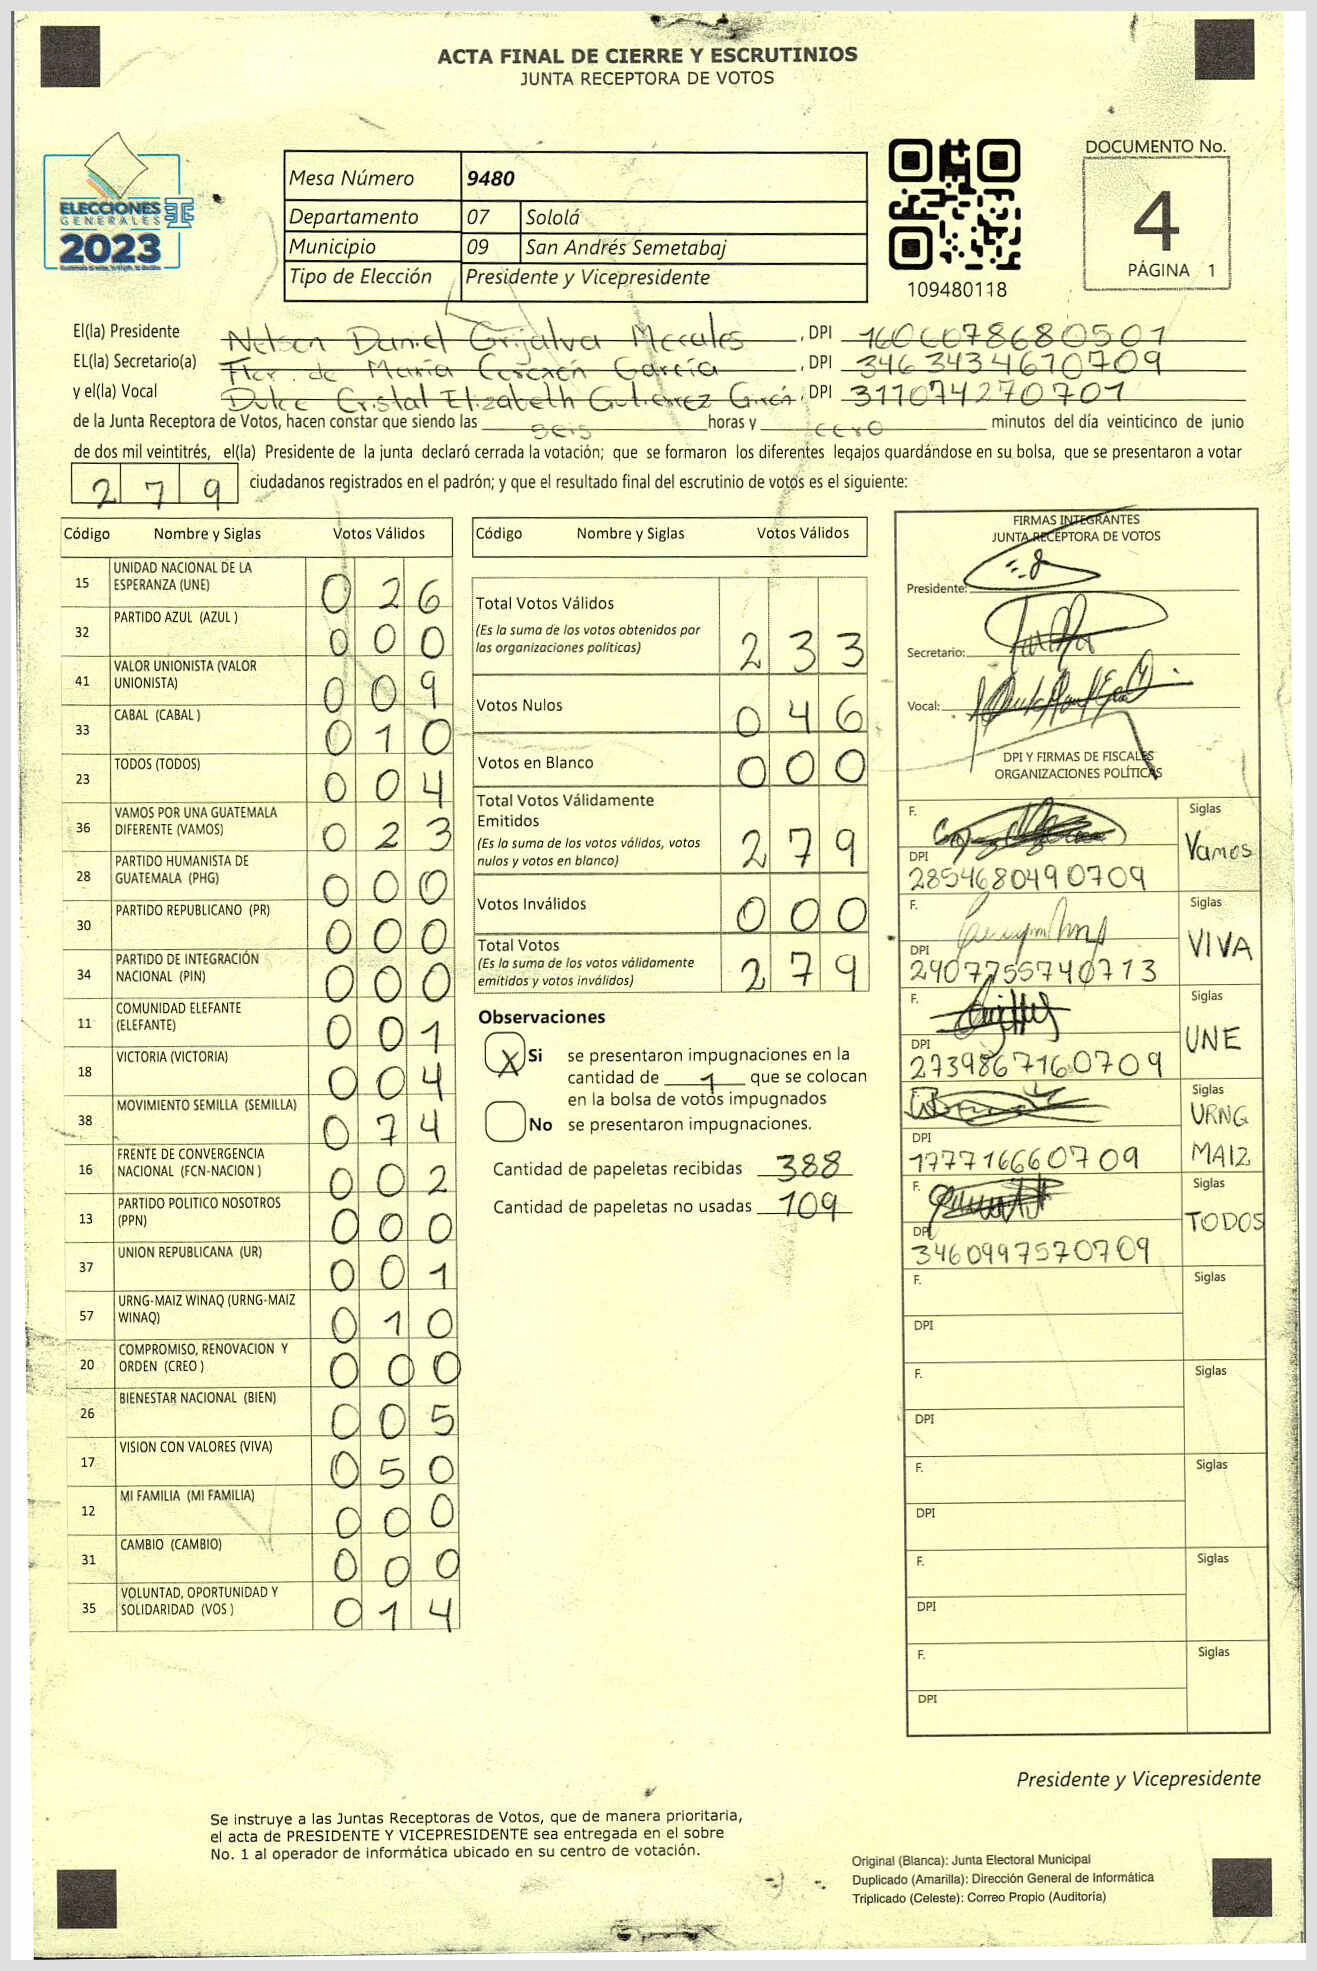 ACTA FINAL DE CIERRE Y ESCRUTINIOS
JUNTA RECEPTORA DE VOTOS
ELECCIONES
GENERALES
2023
Mesa Número 9480
Departamento 07 Sololá
Municipio 09 San Andrés Semetabaj
Tipo de Elección Presidente y Vicepresidente
109480118
DOCUMENTO No.
4
PÁGINA 1
El(la) Presidente Nelson Daniel Grijalva Morales, DPI 1606078680501
EL(la) Secretario(a) Flor de María Cororón García, DPI 3463434670709
y el(la) Vocal Dulce Cristal Elizabeth Gutierrez Girón, DPI 311074270701
de la Junta Receptora de Votos, hacen constar que siendo las seis horas y cero minutos del día veinticinco de junio
de dos mil veintitrés, el(la) Presidente de la junta declaró cerrada la votación; que se formaron los diferentes legajos guardándose en su bolsa, que se presentaron a votar
279 ciudadanos registrados en el padrón; y que el resultado final del escrutinio de votos es el siguiente:
Código Nombre y Siglas Votos Válidos
15 UNIDAD NACIONAL DE LA ESPERANZA (UNE) 026
32 PARTIDO AZUL (AZUL ) 000
41 VALOR UNIONISTA (VALOR UNIONISTA) 009
33 CABAL (CABAL ) 010
23 TODOS (TODOS) 004
36 VAMOS POR UNA GUATEMALA DIFERENTE (VAMOS) 023
28 PARTIDO HUMANISTA DE GUATEMALA (PHG) 000
30 PARTIDO REPUBLICANO (PR) 000
34 PARTIDO DE INTEGRACIÓN NACIONAL (PIN) 000
11 COMUNIDAD ELEFANTE (ELEFANTE) 001
18 VICTORIA (VICTORIA) 004
38 MOVIMIENTO SEMILLA (SEMILLA) 074
16 FRENTE DE CONVERGENCIA NACIONAL (FCN-NACION ) 002
13 PARTIDO POLITICO NOSOTROS (PPN) 000
37 UNION REPUBLICANA (UR) 001
57 URNG-MAIZ WINAQ (URNG-MAIZ WINAQ) 010
20 COMPROMISO, RENOVACION Y ORDEN (CREO ) 000
26 BIENESTAR NACIONAL (BIEN) 005
17 VISION CON VALORES (VIVA) 050
12 MI FAMILIA (MI FAMILIA) 000
31 CAMBIO (CAMBIO) 000
35 VOLUNTAD, OPORTUNIDAD Y SOLIDARIDAD (VOS ) 014
Código Nombre y Siglas Votos Válidos
Total Votos Válidos 233
(Es la suma de los votos obtenidos por
las organizaciones políticas)
Votos Nulos 046
Votos en Blanco 000
Total Votos Válidamente
Emitidos 279
(Es la suma de los votos válidos, votos
nulos y votos en blanco)
Votos Inválidos 000
Total Votos 279
(Es la suma de los votos válidamente
emitidos y votos inválidos)
Observaciones
X Si se presentaron impugnaciones en la
cantidad de 1 que se colocan
en la bolsa de votos impugnados
No se presentaron impugnaciones.
Cantidad de papeletas recibidas 388
Cantidad de papeletas no usadas 109
FIRMAS INTEGRANTES
JUNTA RECEPTORA DE VOTOS
Presidente:
Secretario:
Vocal:
DPI Y FIRMAS DE FISCALES
ORGANIZACIONES POLÍTICAS
F. Siglas Vamos
DPI 2854680490709
F. Siglas VIVA
DPI 2907755740713
F. Siglas UNE
DPI 2739867160709
Siglas URNG MAIZ
DPI 1777166660709
F. Siglas TODOS
DPI 3460997570709
F. Siglas
DPI
F. Siglas
DPI
F. Siglas
DPI
F. Siglas
DPI
F. Siglas
DPI
Presidente y Vicepresidente
Se instruye a las Juntas Receptoras de Votos, que de manera prioritaria,
el acta de PRESIDENTE Y VICEPRESIDENTE sea entregada en el sobre
No. 1 al operador de informática ubicado en su centro de votación.
Original (Blanca): Junta Electoral Municipal
Duplicado (Amarilla): Dirección General de Informática
Triplicado (Celeste): Correo Propio (Auditoría)